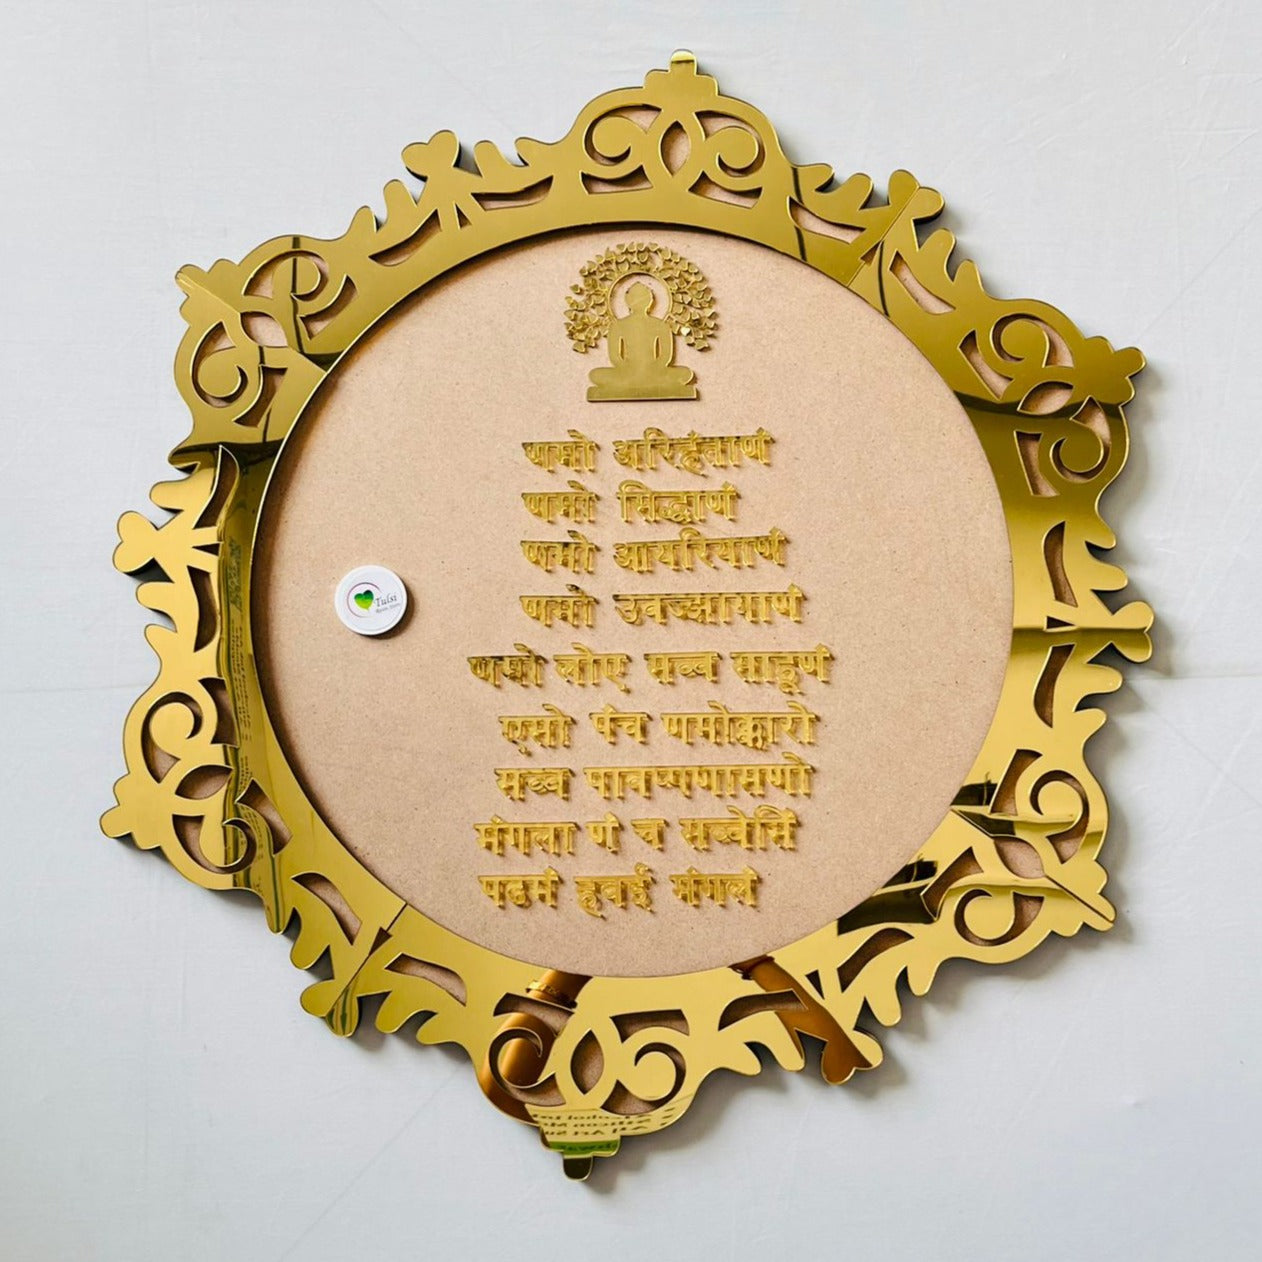 णमो अरिहंताणं
णमो सिद्धाणं
णमो आयरियाणं
णमो उवज्झायाणं
णमो लोए सव्व साहूणं
एसो पंच णमोक्कारो
सव्व पावप्पणासणो
मंगला णं च सव्वेसिं
पढमं हवई मंगलं
Tulsi